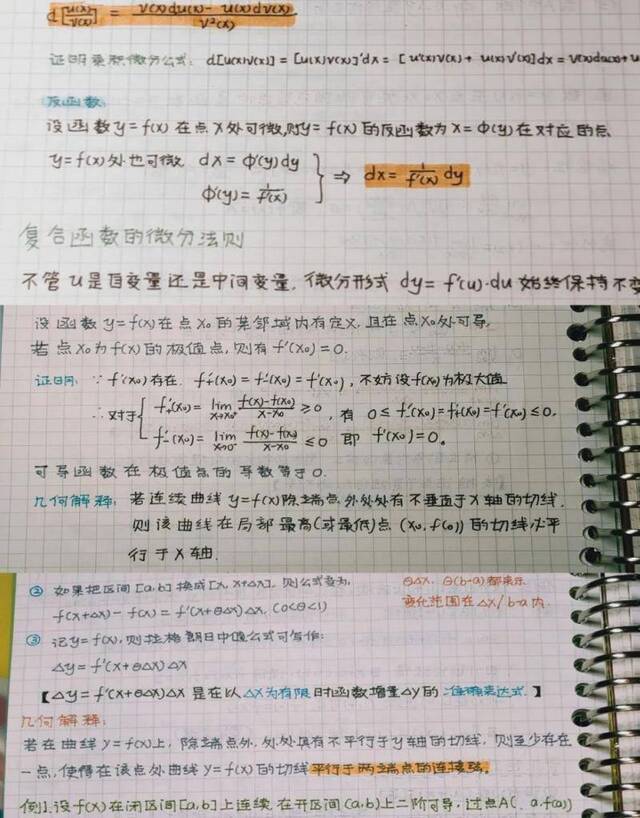 d[u(x)/v(x)] = v(x)du(x) - u(x)dv(x) / v²(x)
证明乘积微分公式: d[u(x)v(x)] = [u(x)v(x)]'dx = [u'(x)v(x) + u(x)v'(x)]dx = v(x)du(x) + u
反函数:
设函数y=f(x)在点x处可微,则y=f(x)的反函数为x=φ(y)在对应的点
y=f(x)处也可微 dx=φ'(y)dy
φ'(y)=1/f'(x) } ⇒ dx=1/f'(x) dy
复合函数的微分法则
不管u是自变量还是中间变量,微分形式 dy=f'(u)·du 始终保持不变
设函数y=f(x)在点x₀的某邻域内有定义,且在点x₀处可导,
若点x₀为f(x)的极值点,则有f'(x₀)=0.
证明: ∵f'(x₀)存在. f'₊(x₀)=f'₋(x₀)=f'(x₀), 不妨设f(x₀)为极大值
∴对于{ f'₊(x₀)=lim x→x₀⁺ f(x)-f(x₀)/x-x₀ ≥0, 有 0≤f'₋(x₀)=f'₊(x₀)=f'(x₀)≤0.
f'₋(x₀)=lim x→0⁻ f(x)-f(x₀)/x-x₀ ≤0 即 f'(x₀)=0.
可导函数在极值点的导数等于0.
几何解释: 若连续曲线y=f(x)除端点外处处有不垂直于x轴的切线.
则该曲线在局部最高(或最低)点(x₀,f(0))的切线必平
行于x轴.
② 如果把区间[a,b]换成[x,x+Δx],则公式变为,
θΔx, θ(b-a)都表示
f(x+Δx)-f(x)=f'(x+θΔx)Δx,(0<θ<1)
变化范围在Δx/b-a内.
③ 记y=f(x),则拉格朗日中值公式可写作:
Δy=f'(x+θΔx)Δx
【Δy=f'(x+θΔx)Δx 是在以Δx为有限时函数增量Δy的准确表达式.】
几何解释:
若在曲线y=f(x)上,除端点外,处处具有不平行于y轴的切线,则至少存在
一点,使得在该点处曲线y=f(x)的切线平行于两端点的连接弦.
例1.设f(x)在闭区间[a,b]上连续,在开区间(a,b)上二阶可导,过点A(a,f(a))